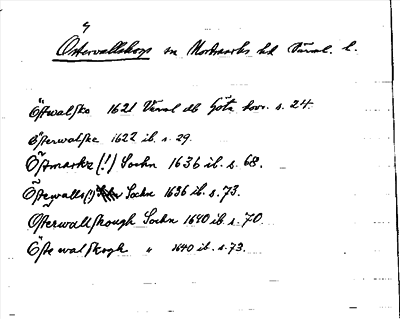 Östervallskog sn Nordmarks hd Värml. l.
Östwalsko 1621 Värml db Göta hovr. s. 24.
Österwalske 1622 ib. s. 29.
Östmarke (!) Sochn 1636 ib. s. 68.
Östewalls(!) Sochn 1636 ib. s. 73.
Osterwallskough Sochn 1640 ib. s. 70.
Östewalskogh " 1640 ib. s. 73.